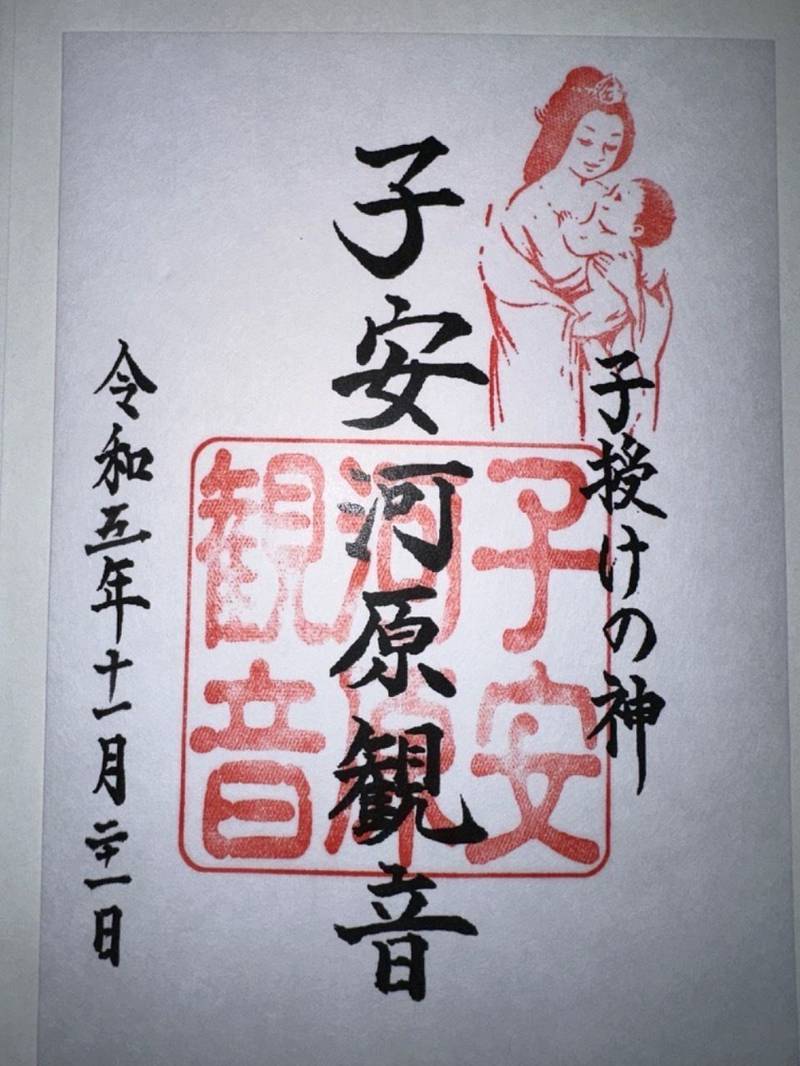 子授けの神
子安河原観音
子安
河原
観音
令和五年十一月二十一日